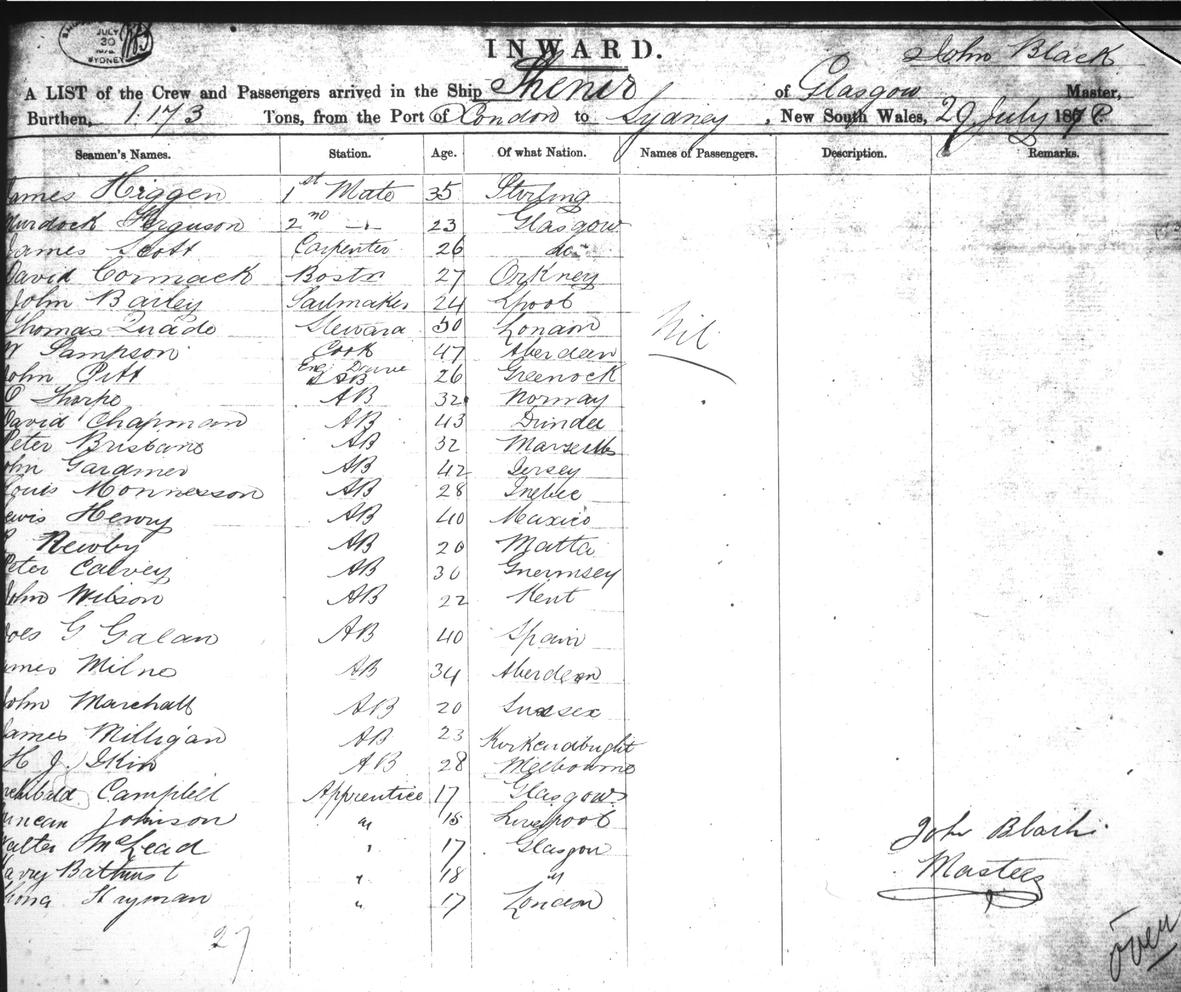 JULY
30
SYDNEY
INWARD.
John Black
A LIST of the Crew and Passengers arrived in the Ship Shenir of Glasgow Master,
Burthen, 1.173 Tons, from the Port of London to Sydney, New South Wales, 29 July 187
Seamen's Names. Station. Age. Of what Nation. Names of Passengers. Description. Remarks.
James Higgen 1st Mate 35 Stirling
Murdock Ferguson 2nd -"- 23 Glasgow
James Scott Carpenter 26 do
David Cormack Bostn 27 Orkney
John Barley Sailmaker 24 Lpool
Thomas Quade Steward 30 London
Nil
W Sampson Cook 47 Aberdeen
John Pitt Eng Driver & AB 26 Greenock
Thorke AB 32 Norway
David Chapman AB 43 Dundee
Peter Brisbane AB 32 Marseills
John Gardiner AB 42 Jersey
Louis Monnesson AB 28 Quebec
Lewis Henry AB 40 Mexico
Newby AB 20 Malta
Peter Calvey AB 30 Guernsey
John Wilson AB 22 Kent
G Galan AB 40 Spain
James Milne AB 34 Aberdeen
John Marshall AB 20 Sussex
James Milligan AB 23 Kirkcudbught
H J. Skin AB 28 Melbourne
Archibald Campbell Apprentice 17 Glasgow
Duncan Johnson " 18 Liverpool
Walter McLead " 17 Glasgow
Harry Bathurst " 18 "
Hayman " 17 London
John Black
Master
27
over